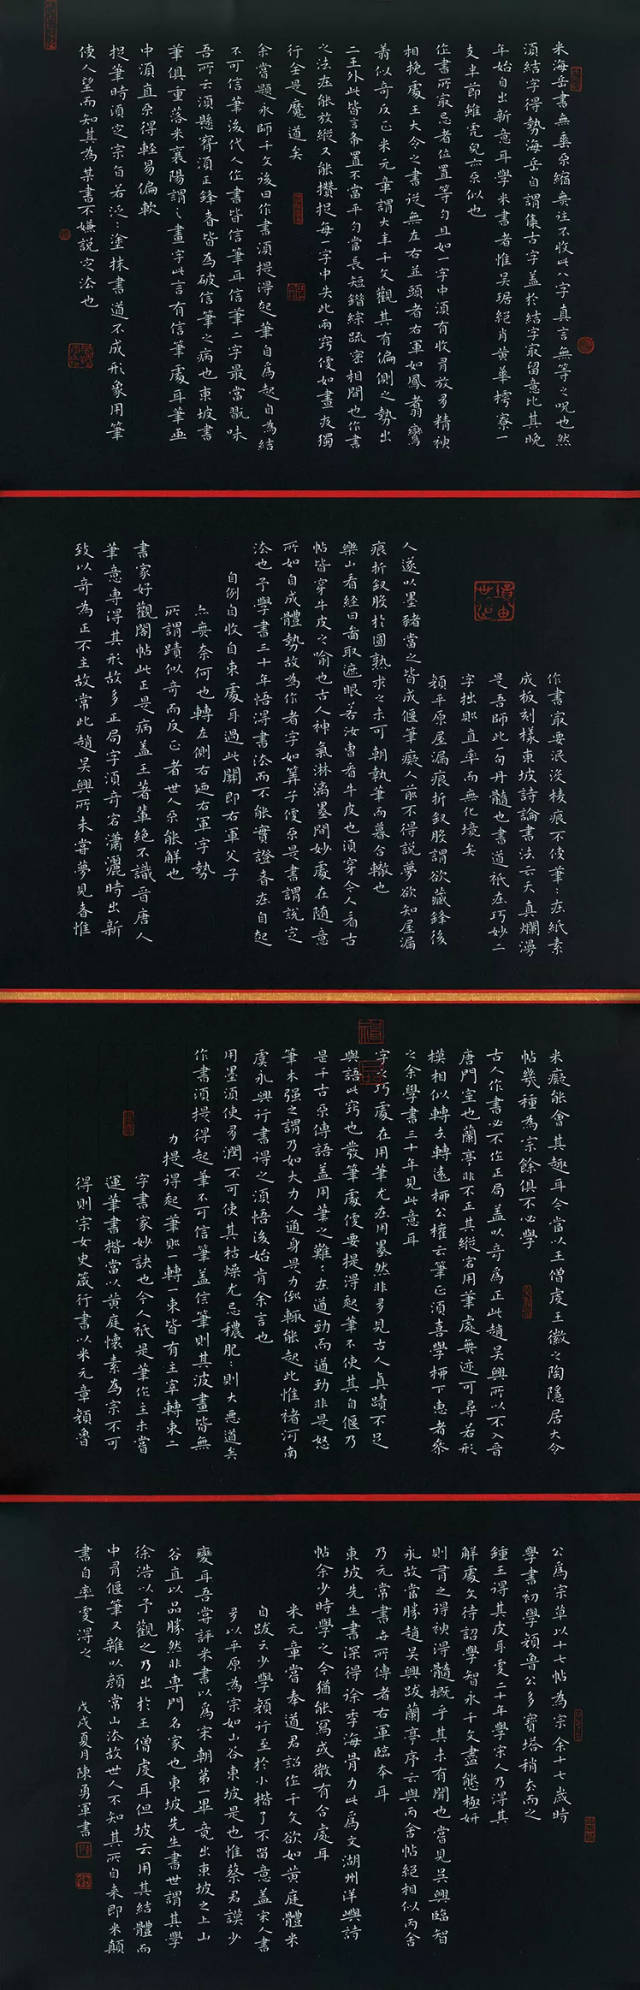 米海岳書無垂不縮無往不收此八字真言無等之呪也然
須結字得勢海岳自謂集古字蓋於結字最留意比其晚
年始自出新意耳學米書者惟吳琚絕肖黃華樗寮一
支半節雖虎兒亦不似也
作書所最忌者位置等勻且如一字中須有收有放有精神
相挽處王大令之書從無左右並頭者右軍如鳳翥鸞
翥似奇反正米元章謂大年千文觀其有偏側之勢出
二王外此皆言布置不當平勻當長短錯綜疏密相間也作書
之法在能放縱又能攢捉每一字中失此兩竅便如晝夜獨
行全是魔道矣
余嘗題永師千文後曰作書須提得起筆自為起自為結
不可信筆後代人作書皆信筆耳信筆二字最當玩味
吾所云須懸臂須正鋒者皆為破信筆之病也東坡書
筆俱重落米襄陽謂之畫字此言有信筆處耳筆畫
中須直不得輕易偏軟
捉筆時須定宗旨若泛泛塗抹書道不成形象用筆
使人望而知其為某書不嫌說定法也
作書最要泯沒稜痕不使筆筆在紙素
成板刻樣東坡詩論書法云天真爛漫
是吾師此一句丹髓也書道祇在巧妙二
字拙則直率而無化境矣
顏平原屋漏痕折釵股謂欲藏鋒後
人遂以墨豬當之皆成偃筆癡人前不得說夢欲知屋漏
痕折釵股於圓熟求之未可朝執筆而暮合轍也
藥山看經曰圖取遮眼若汝曹看牛皮也須穿今人看古
帖皆穿牛皮之喻也古人神氣淋漓墨間妙處在隨意
所如自成體勢故為作者字如筭子便不是書謂說定
法也予學書三十年悟得書法而不能實證者在自起
自倒自收自束處耳過此關即右軍父子
亦無奈何也轉左側右乃右軍字勢
所謂蹟似奇而反正者世人不能解也
書家好觀閣帖此正是病蓋王著輩絕不識晉唐人
筆意專得其形故多正局字須奇宕瀟灑時出新
致以奇為正不主故常此趙吳興所未嘗夢見者惟
米癡能會其趣耳今當以王僧虔王徽之陶隱居大令
帖幾種為宗餘俱不必學
古人作書必不作正局蓋以奇為正此趙吳興所以不入晉
唐門室也蘭亭非不正其縱宕用筆處無迹可尋若形
模相似轉去轉遠柳公權云筆正須善學柳下惠者參
之余學書三十年見此意耳
字之巧處在用筆尤在用墨然非多見古人真蹟不足
與語此竅也發筆處便要提得起筆不使其自偃乃
是千古不傳語蓋用筆之難難在遒勁而遒勁非是怒
筆木強之謂乃如大力人通身是力倒輒能起此惟褚河南
虞永興行書得之須悟後始肯余言也
用墨須使有潤不可使其枯燥尤忌穠肥肥則大惡道矣
作書須提得起筆不可信筆蓋信筆則其波畫皆無
力提得起筆則一轉一束皆有主宰轉束二
字書家妙訣也今人祇是筆作主未嘗
運筆書楷當以黃庭懷素為宗不可
得則宗女史箴行書以米元章顏魯
公為宗草以十七帖為宗余十七歲時
學書初學顏魯公多寶塔稍去而之
鍾王得其皮耳更二十年學宋人乃得其
解處文待詔學智永千文盡態極妍
則有之得神得髓概乎其未有聞也嘗見吳興臨智
永故當勝趙吳興跋蘭亭序云與丙舍帖絕相似丙舍
乃元常書世所傳者右軍臨本耳
東坡先生書深得徐季海骨力此為文湖州洋嶼詩
帖余少時學之今猶能寫或微有合處耳
米元章嘗奉道君詔作千文欲如黃庭體米
自跋云少學顏行至於小楷了不留意蓋宋人書
多以平原為宗如山谷東坡是也惟蔡君謨少
變耳吾嘗評米書以為宋朝第一畢竟出東坡之上山
谷直以品勝然非專門名家也東坡先生書世謂其學
徐浩以予觀之乃出於王僧虔耳但坡云用其結體而
中有偃筆又雜以顏常山法故世人不知其所自來即米顛
書自率更得之
戊戌夏月陳勇軍書